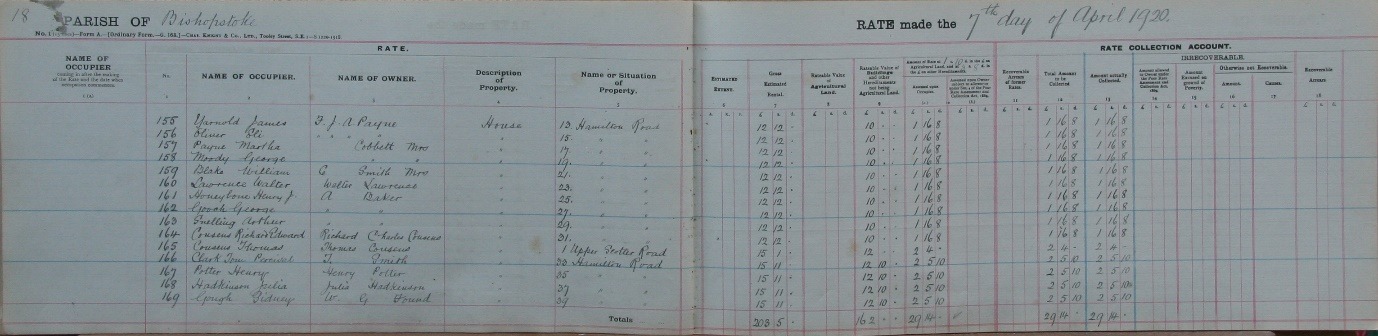 18 PARISH OF Bishopstoke
RATE made the 7th day of April 1920.
RATE.
RATE COLLECTION ACCOUNT.
NAME OF OCCUPIER
No. NAME OF OCCUPIER. NAME OF OWNER. Description of Property. Name or Situation of Property.
ESTIMATED EXTENT. Gross Estimated Rental. Rateable Value of Agricultural Land. Rateable Value of Buildings and other Hereditaments not being Agricultural Land.
Recoverable Arrears of former Rates. Total Amount to be Collected Amount actually Collected. IRRECOVERABLE. Recoverable Arrears
Otherwise not Recoverable.
Amount. Causes.
155 Yarnold James F. J. A Payne House 13 Hamilton Road 12 12 10 1 16 8 1 16 8 1 16 8
156 Oliver Eli " " " 15 " " 12 12 10 1 16 8 1 16 8 1 16 8
157 Payne Martha Cobbett Mrs " 17 " " 12 12 10 1 16 8 1 16 8 1 16 8
158 Moody George " " " 19 " " 12 12 10 1 16 8 1 16 8 1 16 8
159 Blake William Smith Mrs " 21 " " 12 12 10 1 16 8 1 16 8 1 16 8
160 Lawrence Walter Walter Lawrence " 23 " " 12 12 10 1 16 8 1 16 8 1 16 8
161 Honeybone Henry J. A Baker " 25 " " 12 12 10 1 16 8 1 16 8 1 16 8
162 George " " " 27 " " 12 12 10 1 16 8 1 16 8 1 16 8
163 Snelling Arthur " " " 29 " " 12 12 10 1 16 8 1 16 8 1 16 8
164 Cousens Richard Edward Richard Charles Cousens " 31 " " 12 12 10 1 16 8 1 16 8 1 16 8
165 Cousens Thomas Thomas Cousens " 1 Upper Scotter Road 15 1 12 2 4 - 2 4 - 2 4 -
166 Clark Tom Percival Smith " 33 Hamilton Road 15 11 12 10 2 5 10 2 5 10 2 5 10
167 Potter Henry Henry Potter " 35 " " 15 11 12 10 2 5 10 2 5 10 2 5 10
168 Hadkinson Julia Julia Hadkinson " 37 " " 15 11 12 10 2 5 10 2 5 10 2 5 10
169 Gough Sidney W. G Pound " 39 " " 15 11 12 10 2 5 10 2 5 10 2 5 10
Totals 203 5 162 29 14 29 14 29 14